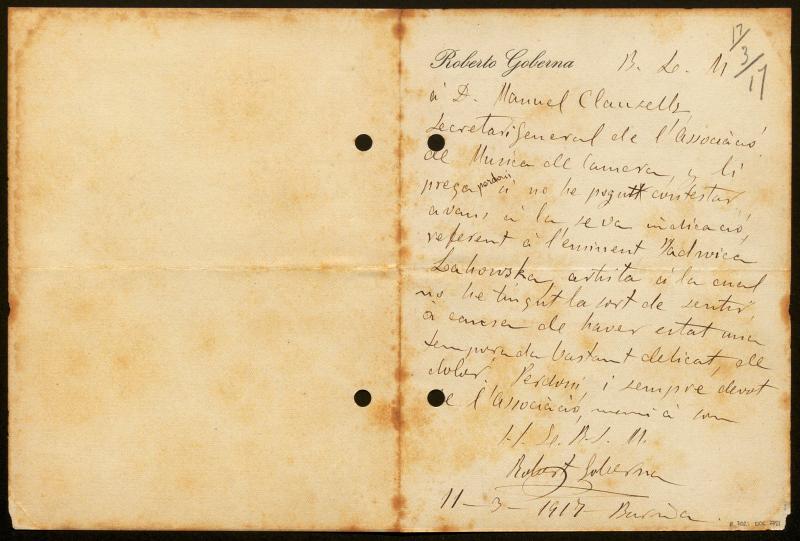 12/3/17
Roberto Goberna B. L. M
à D. Manuel Clausells,
Secretari General de l'Associació
de Musica de Camera, y li
prega perdoni si no he pogut contestar
avans à la seva indicació,
referent à l'eminent
Lahowska, artista à la cual
no he tingut la sort de sentir,
à causa de haver estat una
temporada bastant delicat, de
dolor. Perdoni, i sempre devot
de l'Associació, mani à son
S. S. Q. B. S. M.
Robert Goberna
11-3-1917